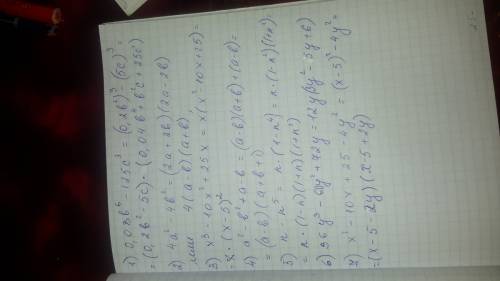 1) 0,008b⁶ - 125c³ = (0,2b²)³ - (5c)³ =
= (0,2b² - 5c) - (0,04b⁴ + b²c + 25c²)
2) 4a² - 4b² = (2a + 2b)(2a - 2b)
или 4(a - b)(a + b)
3) x³ - 10x² + 25x = x(x² - 10x + 25) =
= x · (x - 5)²
4) a² - b² + a - b = (a - b)(a + b) + (a - b) =
= (a - b)(a + b + 1)
5) n - n⁵ = n · (1 - n⁴) = n · (1 - n²)(1 + n²) =
= n · (1 - n)(1 + n)(1 + n²)
6) 36y³ - 60y² + 72y = 12y(3y² - 5y + 6)
7) x² - 10x + 25 - 4y² = (x - 5)² - 4y² =
= (x - 5 - 2y)(x - 5 + 2y)